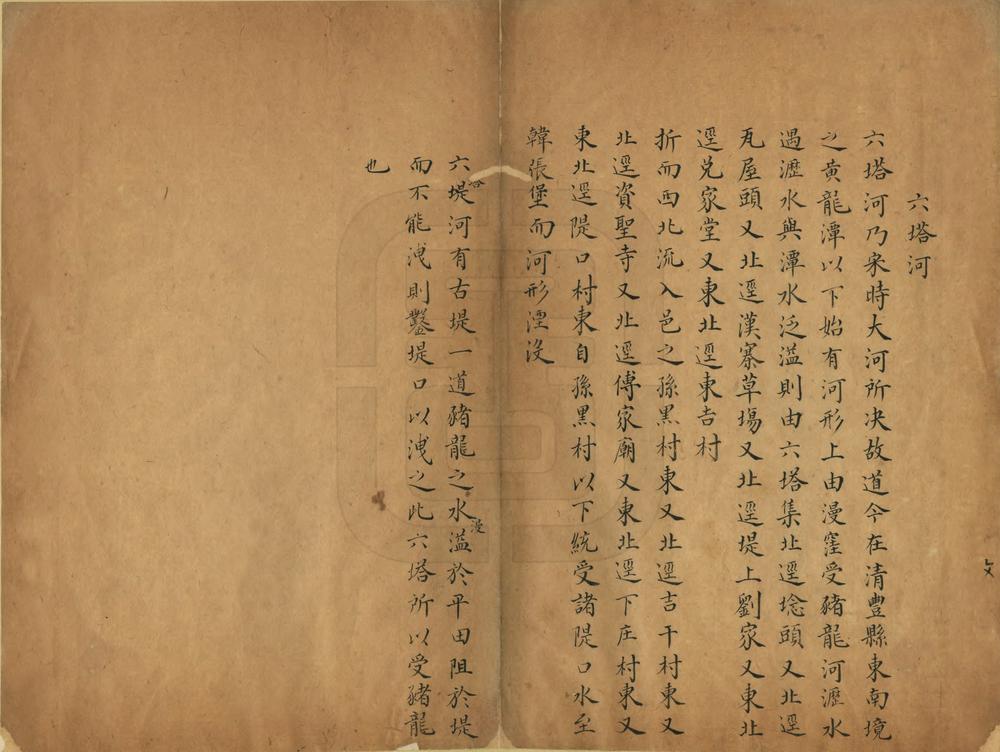 六塔河
六塔河乃宋時大河所決故道今在清豐縣東南境
之黄龍潭以下始有河形上由漫窪受豬龍河瀝水
遇瀝水與潭水泛溢則由六塔集北逕埝頭又北逕
瓦屋頭又北逕漢寨草場又北逕堤上劉家又東北
逕兑家堂又東北逕東吉村
折而西北流入邑之孫黑村東又北逕吉干村東又
北逕資聖寺又北逕傅家廟又東北逕下庄村東又
東北逕隄口村東自孫黑村以下統受諸隄口水至
韓張堡而河形湮沒
六堤河有古堤一道豬龍之水溢於平田阻於堤
塔
漫
而不能洩則鑿堤口以洩之此六塔所以受豬龍
也